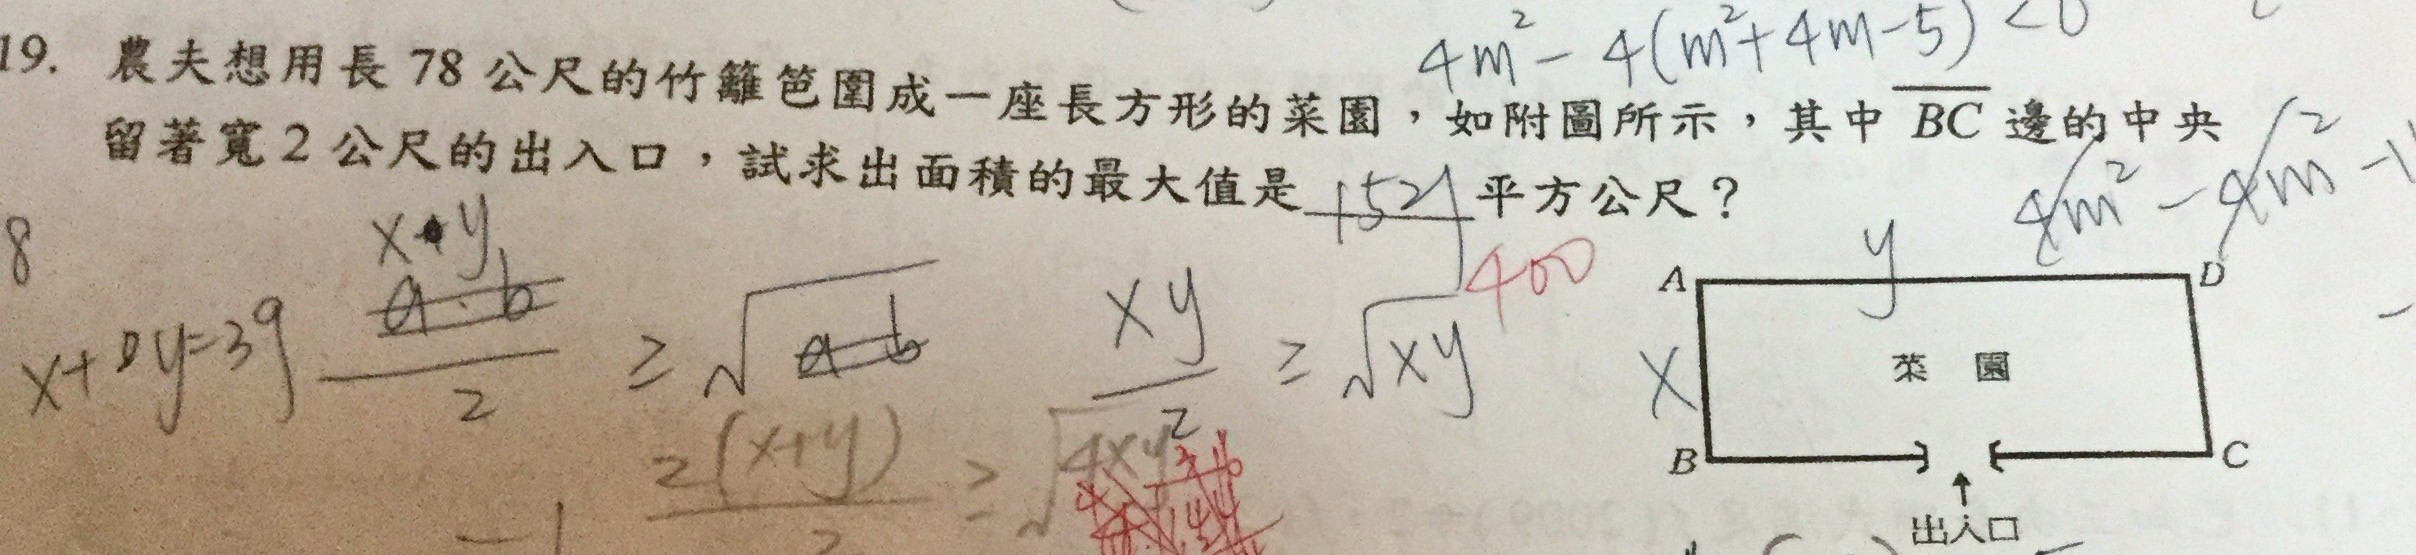 4m² - 4(m²+4m-5) < 0
19. 農夫想用長 78 公尺的竹籬笆圍成一座長方形的菜園，如附圖所示，其中 BC 邊的中央
留著寬 2 公尺的出入口，試求出面積的最大值是 1521 平方公尺？
400
4m² - 4m² - 1
8
x+y=39
x+y
a·b
2
≥ √ab
xy
2
≥ √xy
2(x+y)
2
≥ √4xy
A
y
D
x
菜 園
B
C
出入口